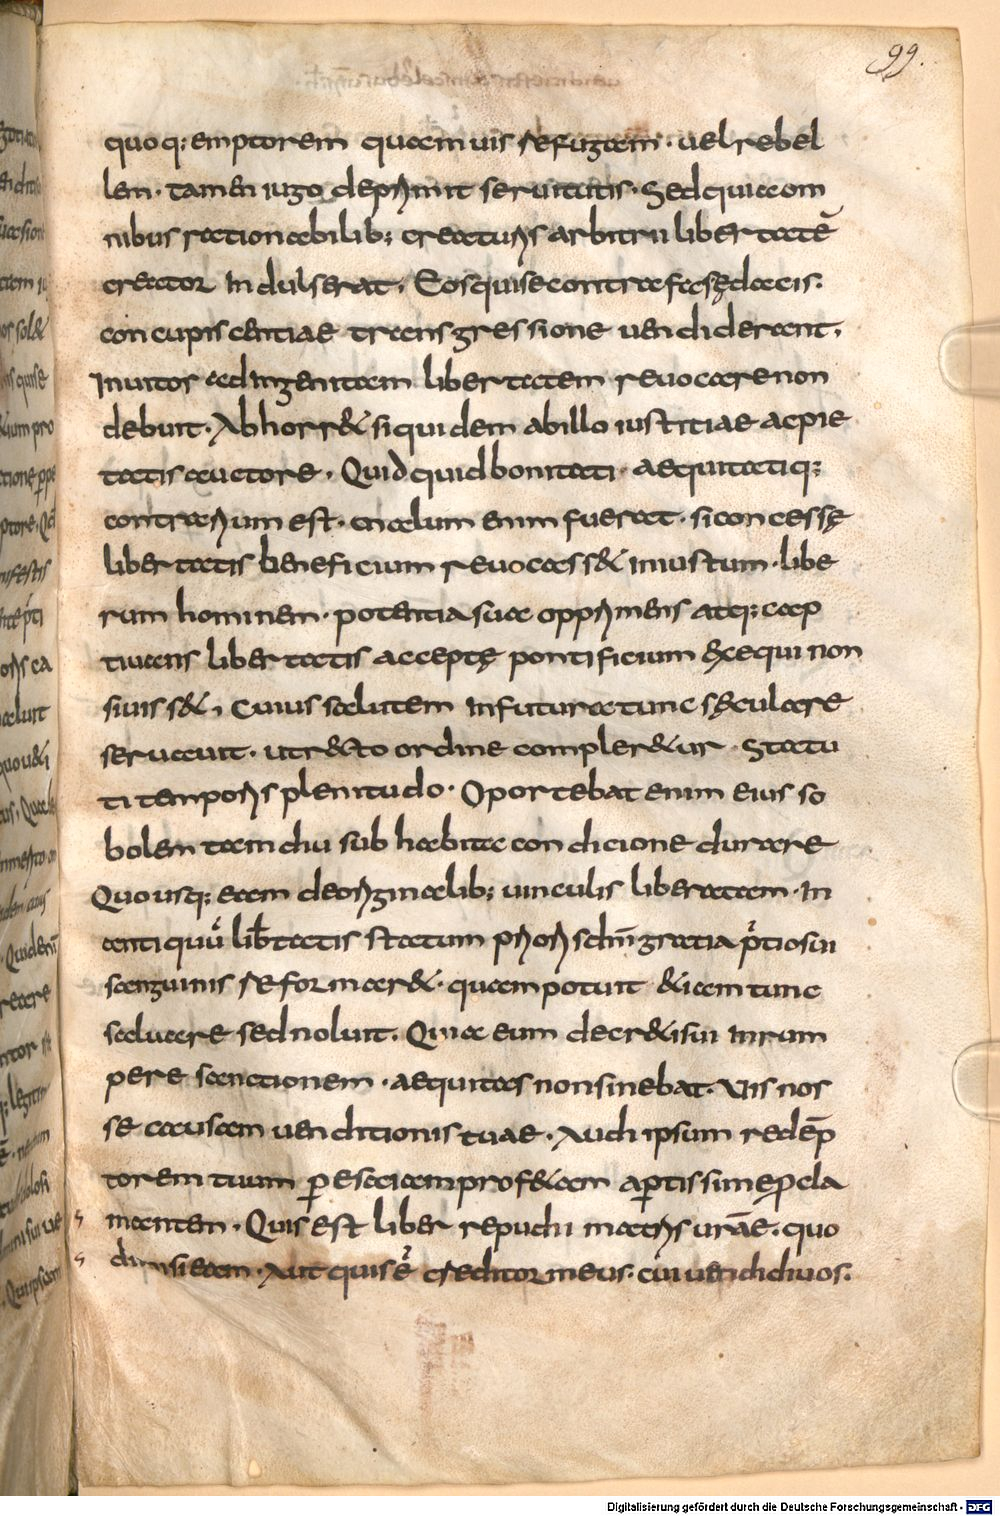 99.
quoq; emptorem quamuis refugam · uel rebel
lem · tamen iugo deprimit seruitutis · Sed quia om
nibus rationabilib; creaturis arbitrii libertatē
creator indulserat. Eos qui se contra fas ędacis.
concupiscentiae transgressione uendiderant.
Inuitos ad ingenitam libertatem reuocare non
debuit. Abhorr& siquidem ab illo iustitiae ac pie
tatis auctore. Quidquid bonitati · aequitatiq;
contrarium est · malum enim fuerat · si concessę
libertatis beneficium reuocass& iniustum · libe
rum hominem · potentia sua opprimens atq; cap
tiuans libertatis acceptę pontificium exequi non
siuiss&. Cuius salutem in futura tunc sęcula re
seruauit · ut r&cto ordine compler&ur · Statu
ti temporis plenitudo. Oportebat enim eius so
bolem tam diu sub habita condicione durare
Quousq; eam de originalib; uinculis liberatam · In
antiquū libtatis statum prioris sčdm̄ gratia p̃tiosui
sanguinis reformar&. quam potuit &iam tunc
saluare sed noluit. Quia eum decr&i sui inrum
pere sanctionem · aequitas non sinebat. Vis nos
se causam uenditionis tuae. Audi ipsum redēp
torem tuum p esaiam prof&am aptissimę pcla
mantem. Quis est liber repudii matris urāe. quo
dimisi eam. Aut quis ē creditor meus. cui uendidi uos.
Digitalisierung gefördert durch die Deutsche Forschungsgemeinschaft - DFG